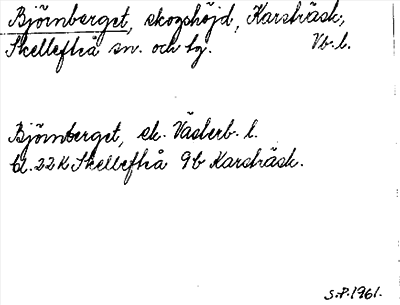 Björnberget, skogshöjd, Karsträsk,
Skellefteå sn. och tg. Vb.l.
Björnberget, ek. Västerb. l.
bl. 22K Skellefteå 9b Karsträsk.
S.P. 1961.